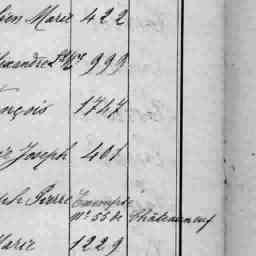 lien Marie 422
lexandre 999
nçois 1747
Joseph 401
ph Pierre Exempté
n° 55 de Châteauneuf
Marie 1229